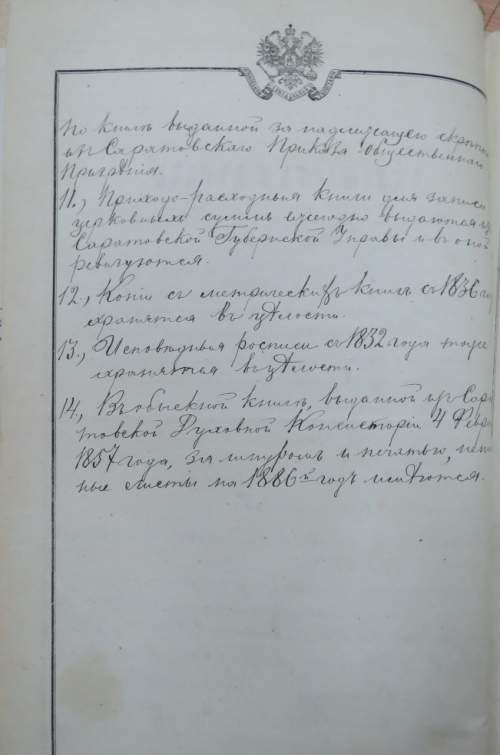 по книгѣ выданной за надлежащею скрѣпою
изъ Саратовскаго Приказа Общественнаго
Призрѣнія.
11., Приходо-расходныя книги для записи
церковныхъ суммъ ежегодно выдаются изъ
Саратовской Губернской Управы и въ оной
ревизуются.
12., Копіи съ метрическихъ книгъ съ 1836 го
хранятся въ цѣлости.
13., Исповѣдныя росписи съ 1832 года тоже
хранятся въ цѣлости.
14., Въ обыскной книгѣ, выданной изъ Сара
товской Духовной Консисторіи 4 Февр
1857 года, за шнуромъ и печатью,
ные листы на 1886й годъ имѣются.